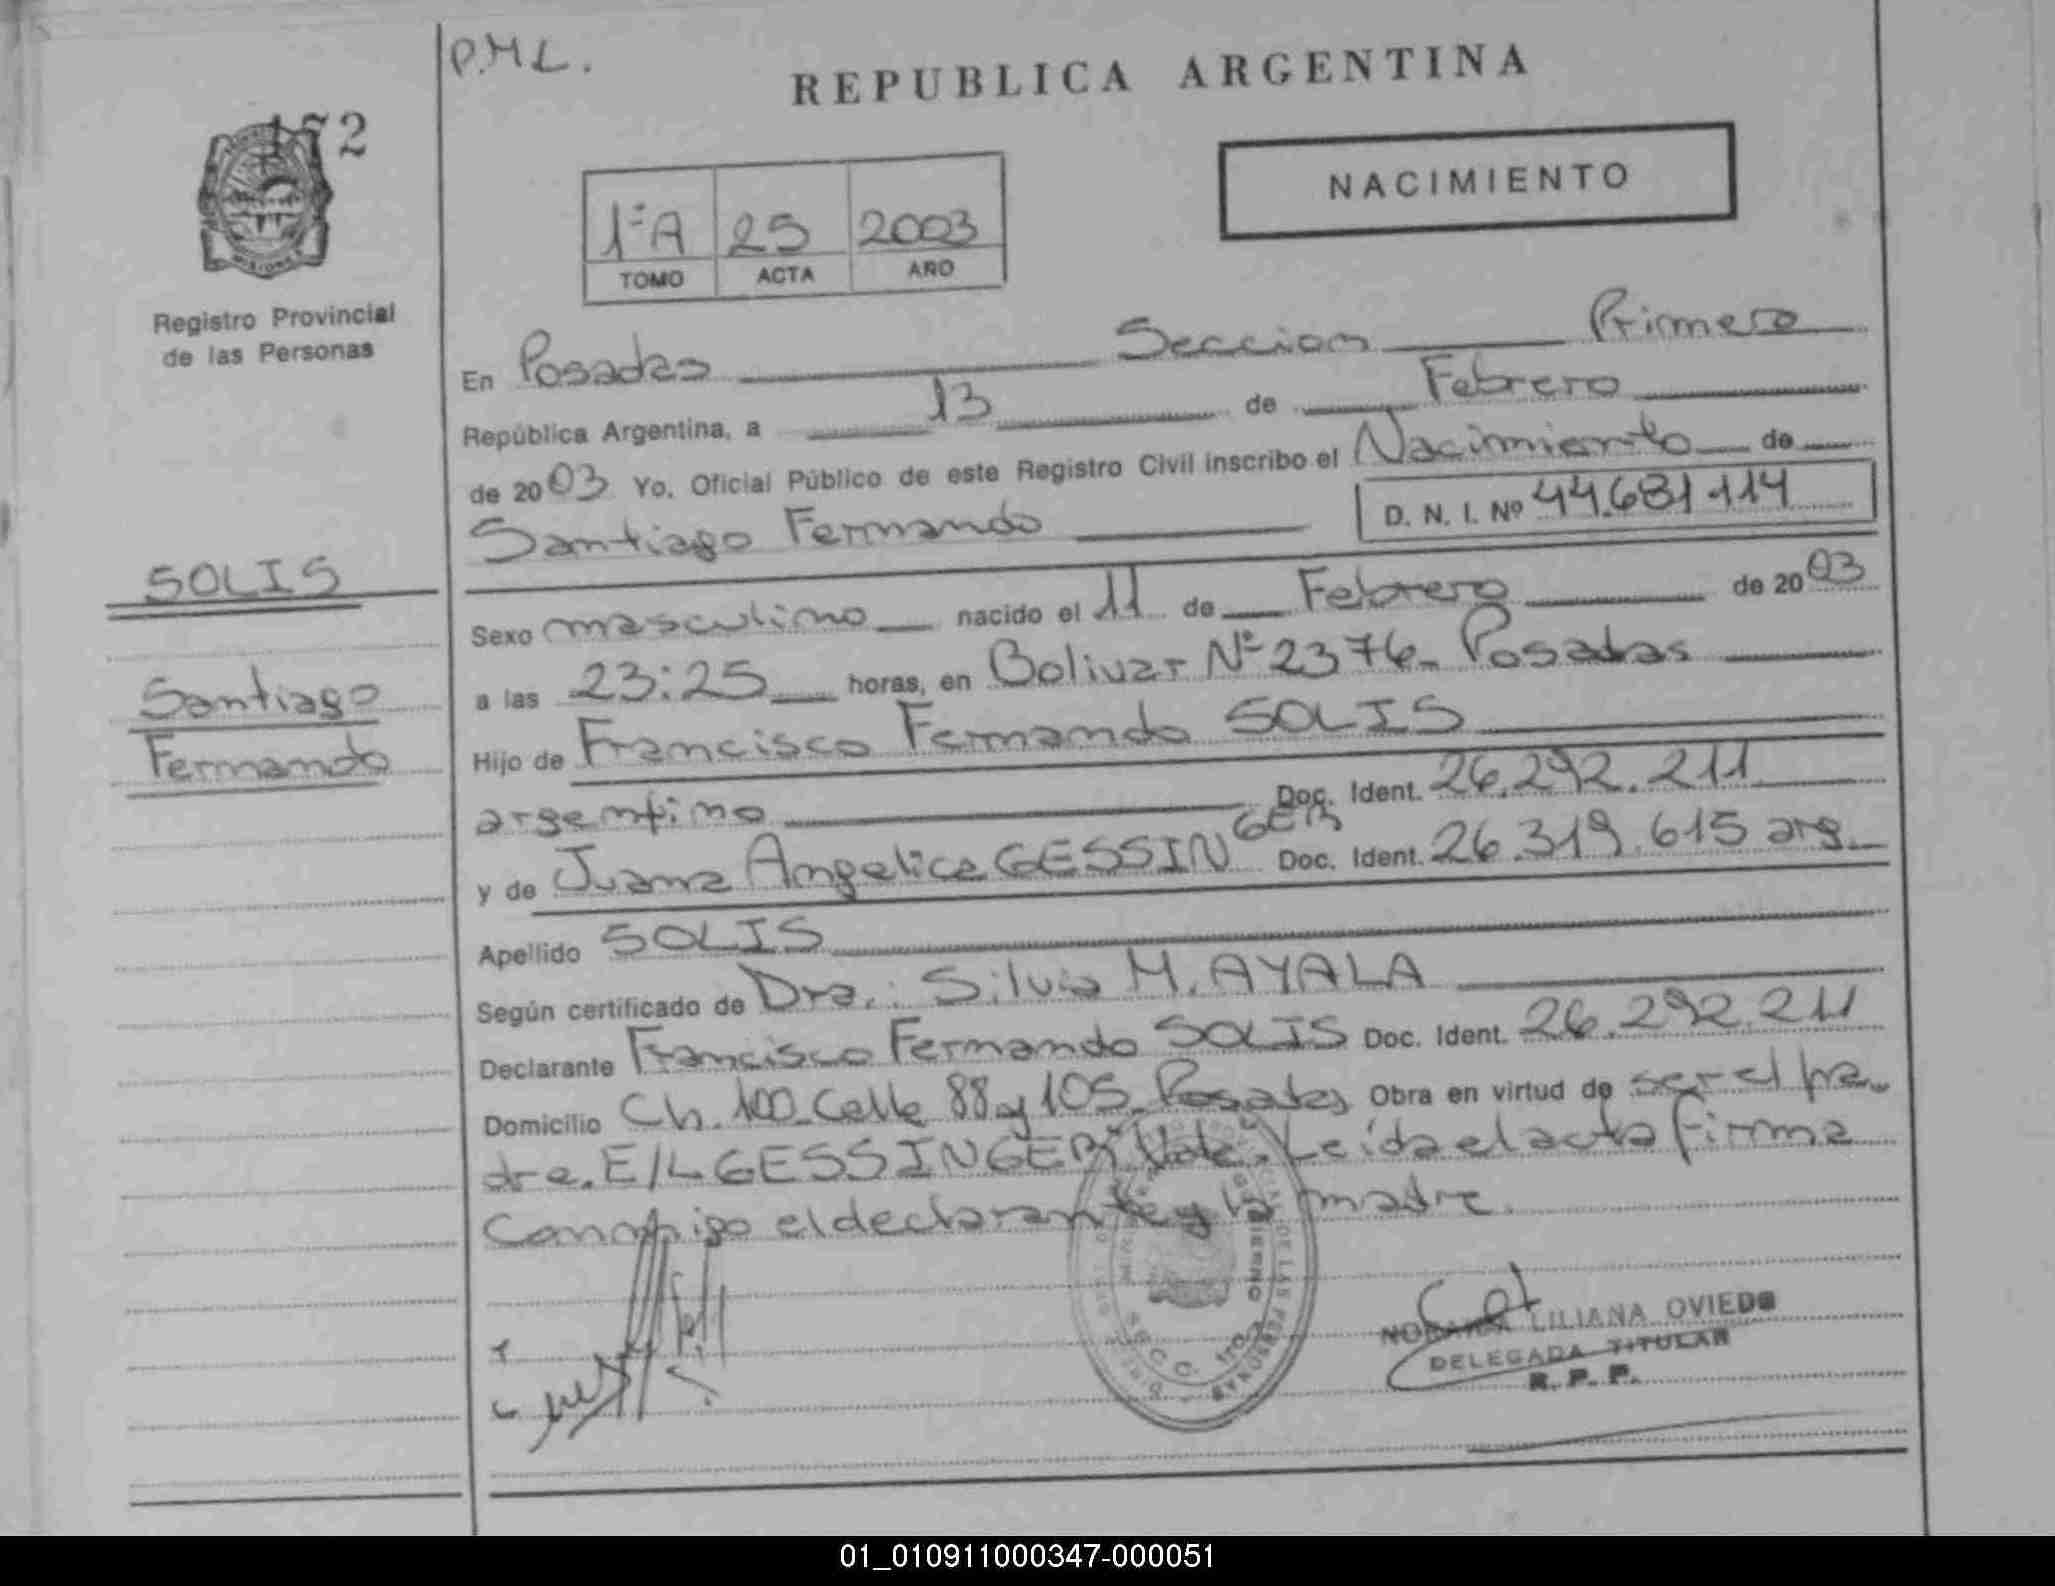 P.M.L.
REPUBLICA ARGENTINA
172
NACIMIENTO
1ºA 25 2003
TOMO ACTA AÑO
MISIONES
Registro Provincial
de las Personas
En Posadas Seccion Primera
República Argentina, a 13 de Febrero
de 2003 Yo, Oficial Público de este Registro Civil inscribo el Nacimiento de
Santiago Fernando D. N. I. Nº 44.681.114
SOLIS
Sexo masculino nacido el 11 de Febrero de 2003
Santiago
Fernando
a las 23:25 horas, en Bolivar Nº 2376- Posadas
Hijo de Francisco Fernando SOLIS
argentino Doc. Ident. 26.292.211
y de Juana Angelica GESSINGER Doc. Ident. 26.319.615 arg.
Apellido SOLIS
Según certificado de Dra.: Silvia M. AYALA
Declarante Francisco Fernando SOLIS Doc. Ident. 26.292.211
Domicilio Ch. 100-Calle 88 y 105-Posadas Obra en virtud de ser el pa-
dre. E/L GESSINGER Vale. Leída el acta firma
conmigo el declarante y la madre.
NORMA LILIANA OVIEDO
DELEGADA TITULAR
R. P. P.
01_010911000347-000051